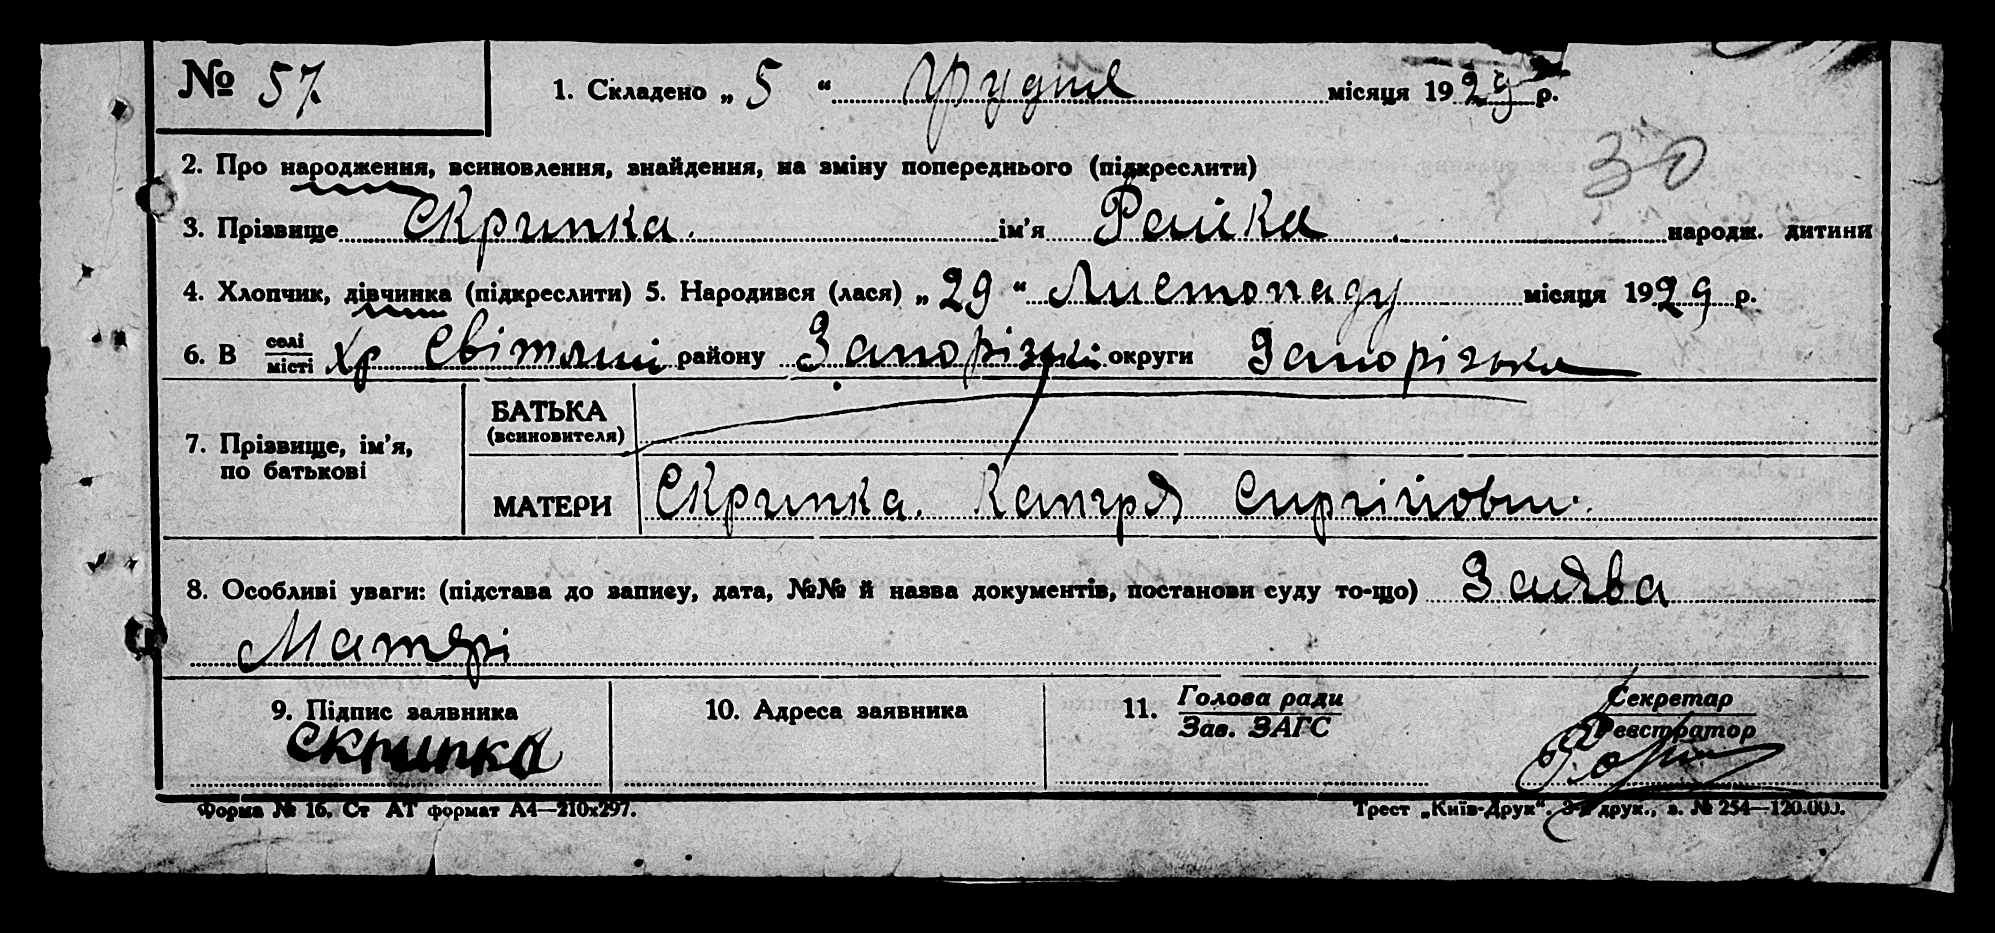 № 57
1. Складено „ 5 “ Грудня місяця 1929 р.
30
2. Про народження, всиновлення, знайдення, на зміну попереднього (підкреслити)
3. Прізвище Скрипка. ім'я Раїка народж. дитини
4. Хлопчик, дівчинка (підкреслити) 5. Народився (лася) „ 29 “ Листопаду місяця 1929 р.
6. В селі/місті хр Світлиці району Запорізькі округи Запорізька
7. Прізвище, ім'я, по батькові
БАТЬКА
(всиновителя)
МАТЕРИ Скрипка. Сиргійовн.
8. Особливі уваги: (підстава до запису, дата, №№ й назва документів, постанови суду то-що) Заява
Матері
9. Підпис заявника
Скрипка
10. Адреса заявника
11. Голова ради
Зав. ЗАГС
Секретар
Реєстратор
Форма № 16. Ст АТ формат А4—210х297.
Трест „Київ-Друк“. 3-я друк., з. № 254—120.000.